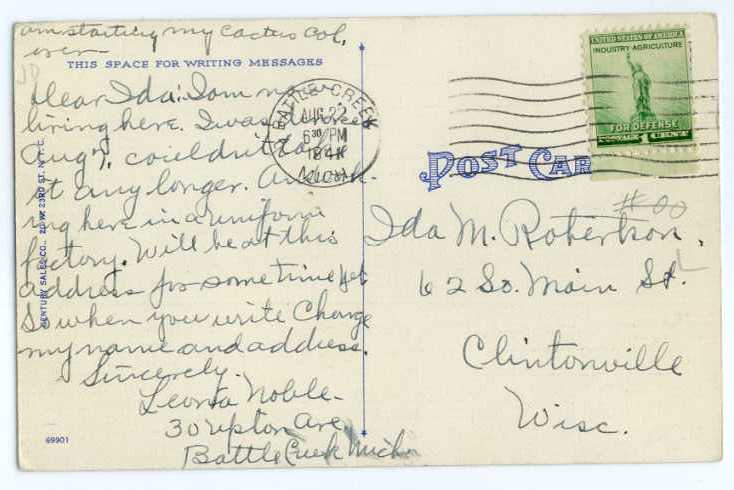 am starting my Cactus Col,
over
THIS SPACE FOR WRITING MESSAGES
Dear Ida: I am now
living here. I was
Aug 7, couldn't take
it any longer. Am work-
ing here in a uniform
factory. Will be at this
address for some time yet
So when you write Change
my name and address.
Sincerely.
Leonta Noble-
30 Upton Ave,
Battle Creek Mich.
69901
CENTURY SALES CO., 23RD ST. N.Y.C.
BATTLE CREEK
AUG 22
6 30 PM
1941
MICH.
UNITED STATES OF AMERICA
INDUSTRY AGRICULTURE
FOR DEFENSE
POSTAGE 1 CENT
POST CAR
#00
Ida M. Robertson,
62 So. Main St.
Clintonville
Wisc.